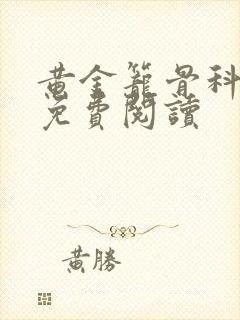 黃金籠骨科
免費閱讀
黃勝